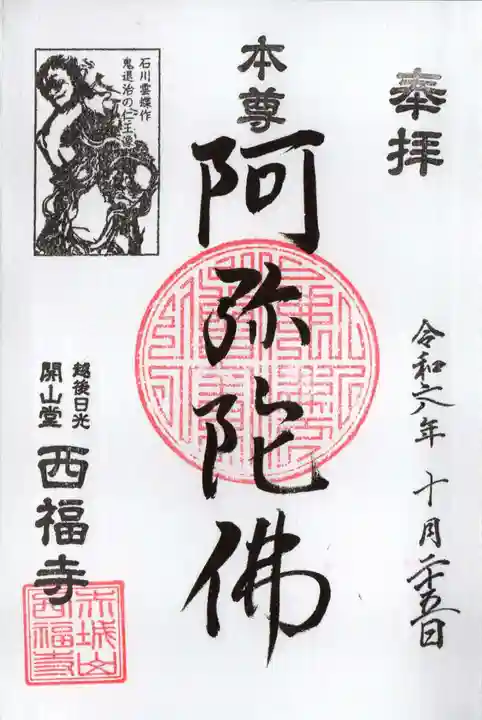 奉拝
令和六年十月二十五日
本尊
阿弥陀佛
石川雲蝶作
鬼退治の仁王像
越後日光
開山堂
西福寺
赤城山
西福寺